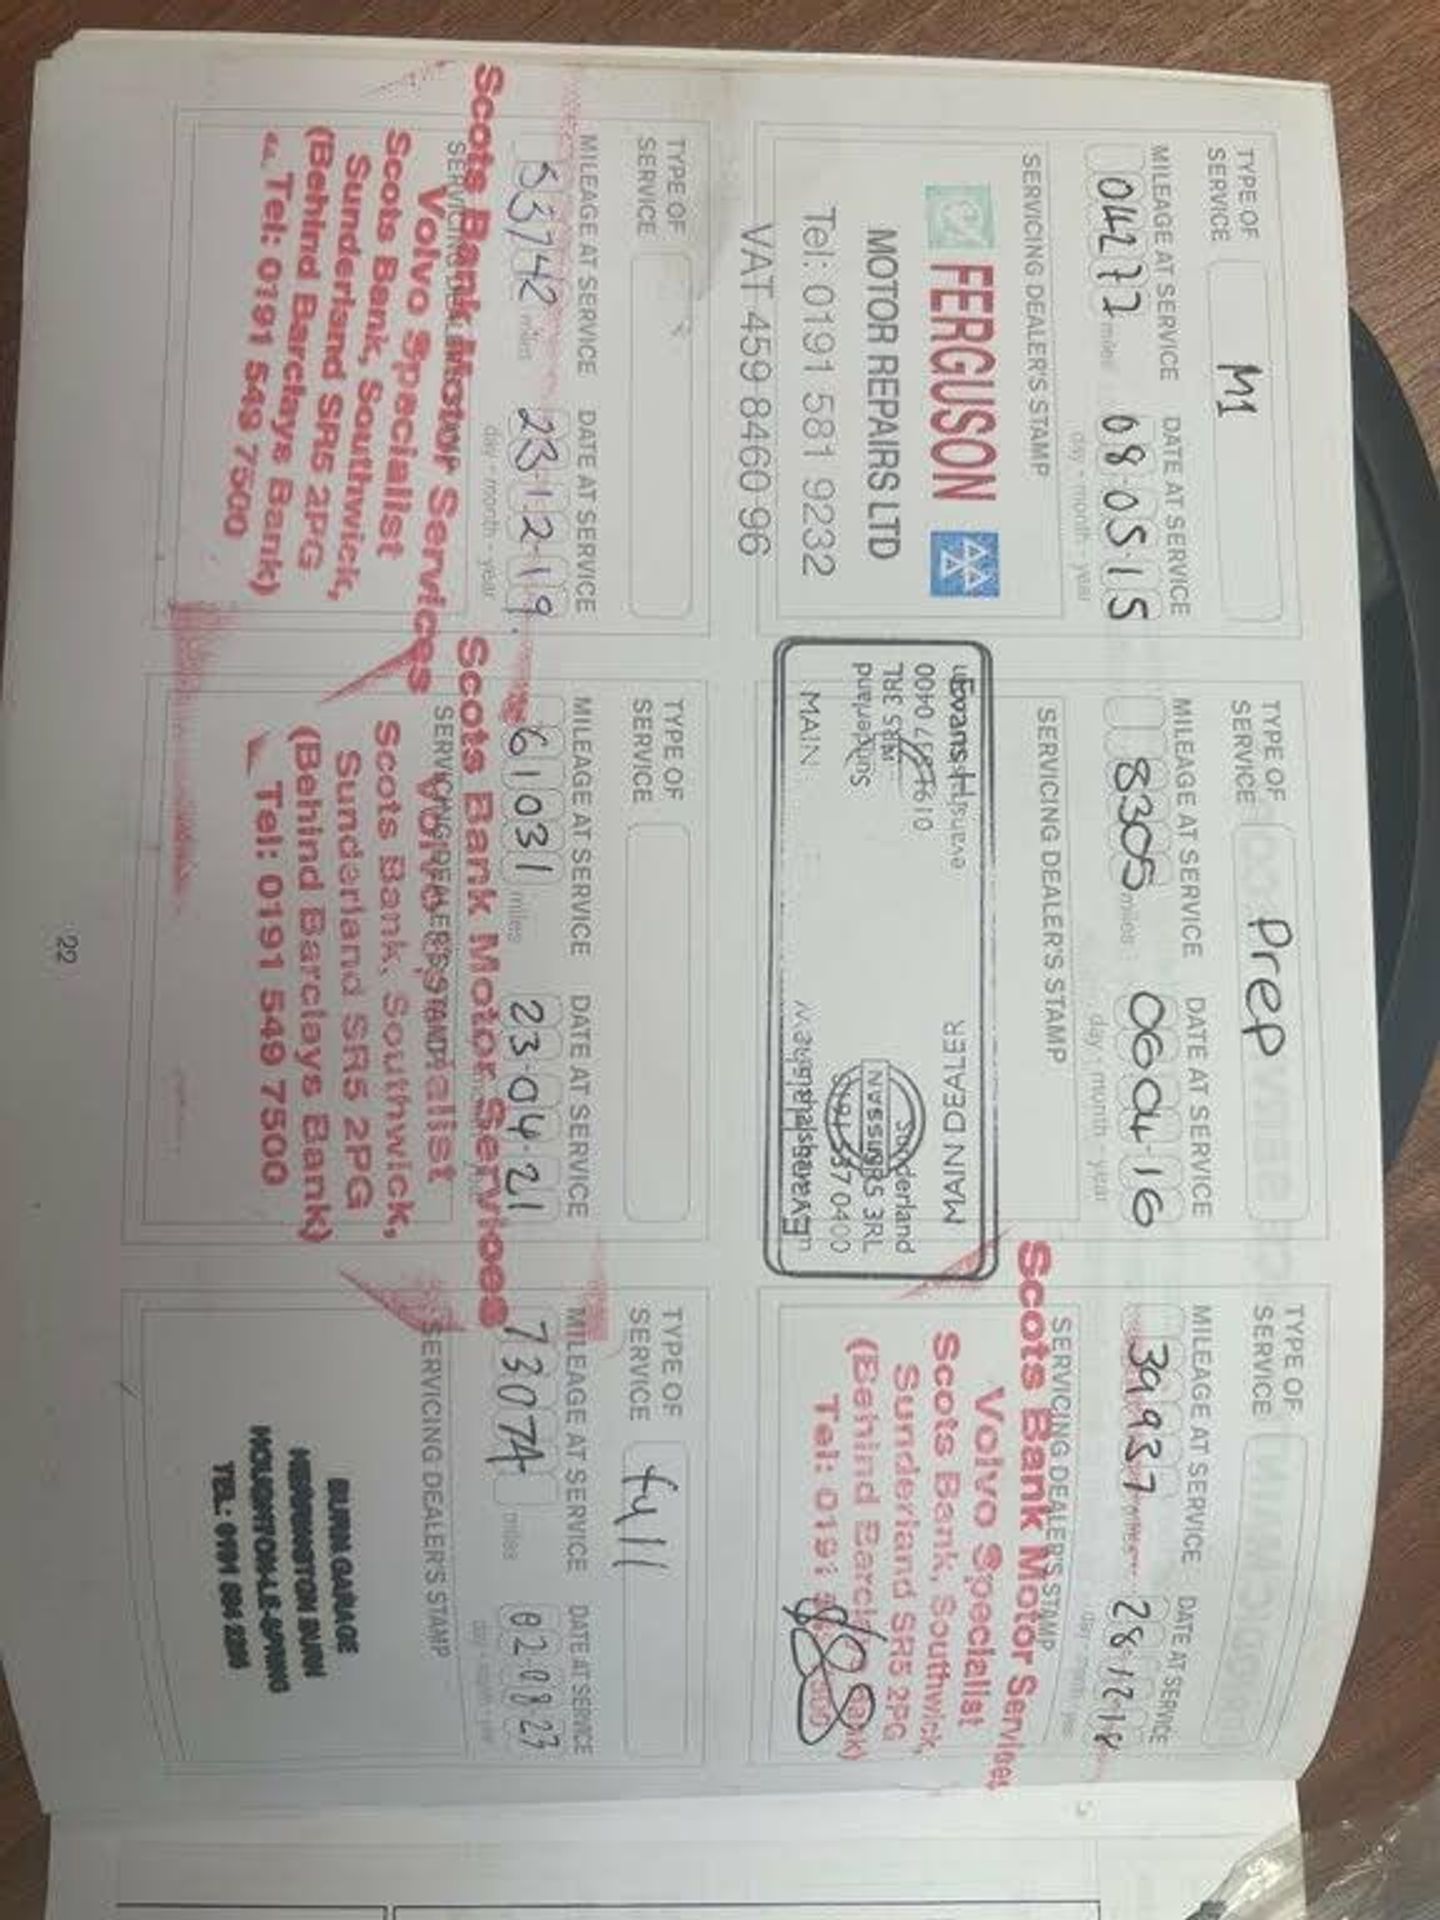 TYPE OF
SERVICE
M1
MILEAGE AT SERVICE
DATE AT SERVICE
04277 miles
08 05 15
day - month - year
SERVICING DEALER'S STAMP
FERGUSON
MOTOR REPAIRS LTD
Tel: 0191 581 9232
VAT 459 8460 96
TYPE OF
SERVICE
Prep
MILEAGE AT SERVICE
DATE AT SERVICE
8305 miles
06 04 16
day - month - year
SERVICING DEALER'S STAMP
MAIN DEALER
Evans
0191 537 0400
SR5 3RL
Sunderland
MAIN
NISSAN
Sunderland
SR5 3RL
0191 537 0400
TYPE OF
SERVICE
MILEAGE AT SERVICE
DATE AT SERVICE
39937 miles
28 12 18
day - month - year
SERVICING DEALER'S STAMP
Scots Bank Motor Services
Volvo Specialist
Scots Bank, Southwick,
Sunderland SR5 2PG
(Behind Barclays Bank)
Tel: 0191
TYPE OF
SERVICE
MILEAGE AT SERVICE
DATE AT SERVICE
53742 miles
23 12 19
day - month - year
Scots Bank Motor Services
Volvo Specialist
Scots Bank, Southwick,
Sunderland SR5 2PG
(Behind Barclays Bank)
Tel: 0191 549 7500
TYPE OF
SERVICE
MILEAGE AT SERVICE
DATE AT SERVICE
61031 miles
23 04 21
SERVICING DEALER'S STAMP
Scots Bank Motor Services
Volvo Specialist
Scots Bank, Southwick,
Sunderland SR5 2PG
(Behind Barclays Bank)
Tel: 0191 549 7500
TYPE OF
SERVICE
full
MILEAGE AT SERVICE
DATE AT SERVICE
73074 miles
02 08 23
day - month - year
SERVICING DEALER'S STAMP
BURN GARAGE
HERRINGTON BURN
HOUGHTON-LE-SPRING
22